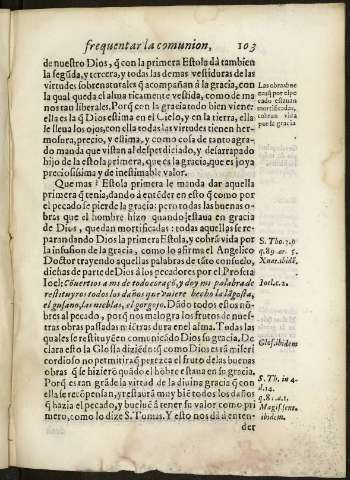 frequentar la comunion, 103
de nuestro Dios, q̃ con la primera Estola dà tambien
la segũda, y tercera, y todas las demas vestiduras de las
virtudes sobrenaturales q̃ acompañan à la gracia, con
la qual queda el alma ricamente vestida, como de ma
nos tan liberales. Porq̃ con la gracia todo bien viene:
ella es la q̃ Dios estima en el Cielo, y en la tierra, ella
le lleva los ojos, con ella todas las virtudes tienen her-
mosura, precio, y estima, y como cosa de tanto agra-
do manda que vistan al desperdiciado, y desarrapado
hijo de la estola primera, que es la gracia, que es joya
preciosissima y de inestimable valor.
Las obras bue
nas q̃ por el pe
cado estavan
mortificadas,
cobran vida
por la gracia
Que mas? Estola primera le manda dar aquella
primera q̃ tenia, dando à entẽder en esto q̃ como por
el pecado se pierde la gracia: pero todas las buenas o-
bras que el hombre hizo quando estava en gracia
de Dios, quedan mortificadas: todas aquellas se re-
parandando Dios la primera Estola, y cobrã vida por
la infusion de la gracia, como lo afirma el Angelico
Doctor trayendo aquellas palabras de tãto consuelo,
dichas de parte de Dios à los pecadores por el Profeta
Ioel: Cõvertios a mi de todo coraçõ, y doy mi palabra de
restituyros todos los daños que huviere hecho la lãgosta,
el gusano, las nieblas, el gorgojo. Dãdo todos estos nõ-
bres al pecado, porq̃ nos malogra los frutos de nues-
tras obras passadas miẽtras dura en el alma. Todas las
quales se restituyẽ en comunicãdo Dios su gracia. De
clara esto la Glosa diziẽdo: q̃ como Dios es tã miseri
cordioso no permitirà q̃ perezca el fruto de las buenas
obras q̃ se hizierõ quãdo el hõbre estava en su gracia.
Porq̃ es tan grãde la virtud de la divina gracia q̃ con
ella se recõpensan, y restaurã muy biẽ todos los daños
q̃ hazia el pecado, y buelvẽ à tener su valor como pri
mero, como lo dize S. Tomas. Y esto nos dà à enten-
der
S. Tho. 3. p.
q. 89. ar. 5.
Xuar. ibid.
Ioel. c. 2.
Glos. ibidem
S. Th. in 4.
d. 14.
q. 8. a. 1.
Magis. sent.
ibidem.